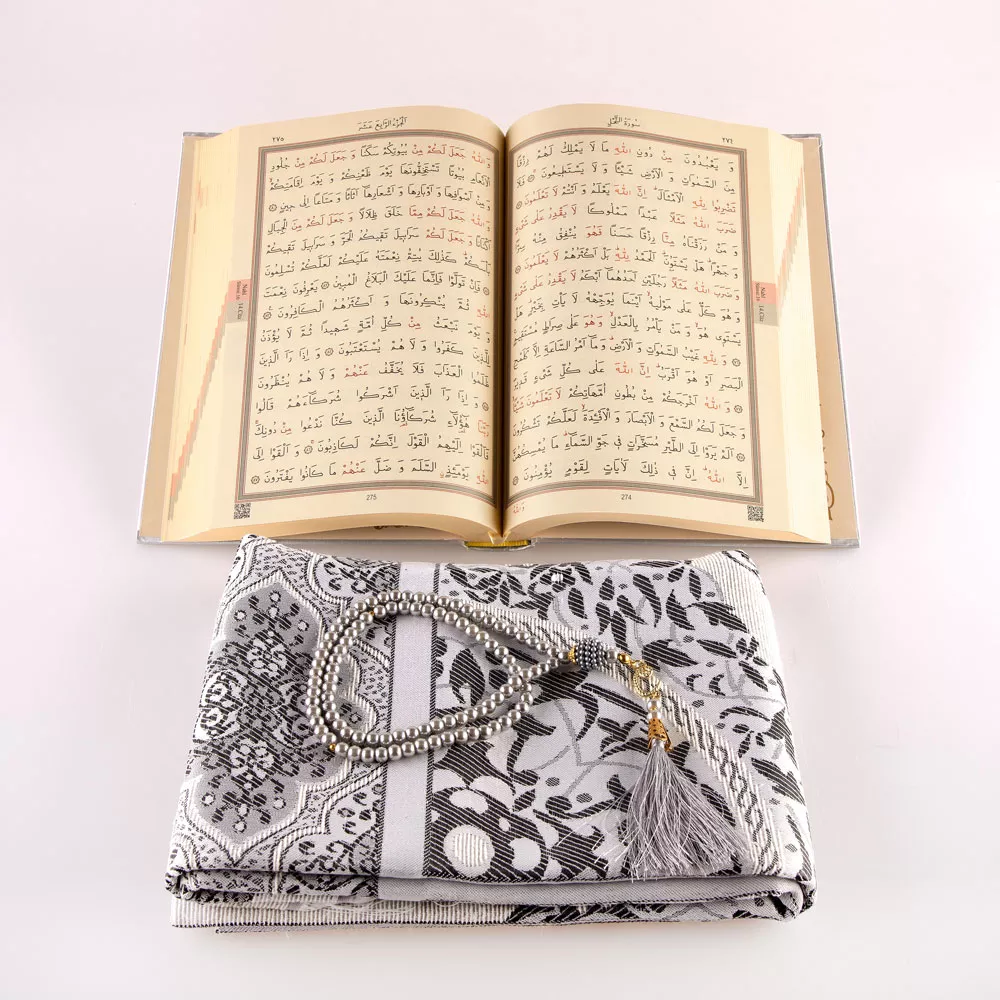 سُورَةُ النَّحْلِ
٢٧٤
وَ يَعْبُدُونَ مِنْ دُونِ اللّٰهِ مَا لَا يَمْلِكُ لَهُمْ رِزْقًا
مِنَ السَّمٰوَاتِ وَ الْاَرْضِ شَيْئًا وَ لَا يَسْتَطٖيعُونَ ۞ فَلَا
تَضْرِبُوا لِلّٰهِ الْاَمْثَالَ اِنَّ اللّٰهَ يَعْلَمُ وَ اَنْتُمْ لَا تَعْلَمُونَ ۞
ضَرَبَ اللّٰهُ مَثَلًا عَبْدًا مَمْلُوكًا لَا يَقْدِرُ عَلٰى شَیْءٍ
وَ مَنْ رَزَقْنَاهُ مِنَّا رِزْقًا حَسَنًا فَهُوَ يُنْفِقُ مِنْهُ سِرًّا
وَ جَهْرًا هَلْ يَسْتَوُنَ اَلْحَمْدُ لِلّٰهِ بَلْ اَكْثَرُهُمْ لَا يَعْلَمُونَ ۞
وَ ضَرَبَ اللّٰهُ مَثَلًا رَجُلَيْنِ اَحَدُهُمَا اَبْكَمُ لَا يَقْدِرُ عَلٰى شَیْءٍ
وَ هُوَ كَلٌّ عَلٰى مَوْلٰيهُ اَيْنَمَا يُوَجِّهْهُ لَا يَأْتِ بِخَيْرٍ هَلْ
يَسْتَوٖى هُوَ وَ مَنْ يَأْمُرُ بِالْعَدْلِ وَ هُوَ عَلٰى صِرَاطٍ مُسْتَقٖيمٍ
۞ وَ لِلّٰهِ غَيْبُ السَّمٰوَاتِ وَ الْاَرْضِ وَ مَا اَمْرُ السَّاعَةِ اِلَّا كَلَمْحِ
الْبَصَرِ اَوْ هُوَ اَقْرَبُ اِنَّ اللّٰهَ عَلٰى كُلِّ شَیْءٍ قَدٖيرٌ
۞ وَ اللّٰهُ اَخْرَجَكُمْ مِنْ بُطُونِ اُمَّهَاتِكُمْ لَا تَعْلَمُونَ شَيْئًا
وَ جَعَلَ لَكُمُ السَّمْعَ وَ الْاَبْصَارَ وَ الْاَفْئِدَةَ لَعَلَّكُمْ تَشْكُرُونَ
۞ اَلَمْ يَرَوْا اِلَى الطَّيْرِ مُسَخَّرَاتٍ فٖى جَوِّ السَّمَاءِ مَا يُمْسِكُهُنَّ
اِلَّا اللّٰهُ اِنَّ فٖى ذٰلِكَ لَاٰيَاتٍ لِقَوْمٍ يُؤْمِنُونَ ۞
وَ اللّٰهُ
274
Nahl
Sûresi 16
14.Cüz
اَلْجُزْءُ الرَّابِعُ عَشَرَ
٢٧٥
وَ اللّٰهُ جَعَلَ لَكُمْ مِنْ بُيُوتِكُمْ سَكَنًا وَ جَعَلَ لَكُمْ مِنْ جُلُودِ
الْاَنْعَامِ بُيُوتًا تَسْتَخِفُّونَهَا يَوْمَ ظَعْنِكُمْ وَ يَوْمَ اِقَامَتِكُمْ
وَ مِنْ اَصْوَافِهَا وَ اَوْبَارِهَا وَ اَشْعَارِهَا اَثَاثًا وَ مَتَاعًا اِلٰى حٖينٍ ۞
وَ اللّٰهُ جَعَلَ لَكُمْ مِمَّا خَلَقَ ظِلَالًا وَ جَعَلَ لَكُمْ مِنَ الْجِبَالِ
اَكْنَانًا وَ جَعَلَ لَكُمْ سَرَابٖيلَ تَقٖيكُمُ الْحَرَّ وَ سَرَابٖيلَ تَقٖيكُمْ
بَأْسَكُمْ كَذٰلِكَ يُتِمُّ نِعْمَتَهُ عَلَيْكُمْ لَعَلَّكُمْ تُسْلِمُونَ
۞ فَاِنْ تَوَلَّوْا فَاِنَّمَا عَلَيْكَ الْبَلَاغُ الْمُبٖينُ ۞ يَعْرِفُونَ نِعْمَتَ
اللّٰهِ ثُمَّ يُنْكِرُونَهَا وَ اَكْثَرُهُمُ الْكَافِرُونَ ۞
وَ يَوْمَ نَبْعَثُ مِنْ كُلِّ اُمَّةٍ شَهٖيدًا ثُمَّ لَا يُؤْذَنُ
لِلَّذٖينَ كَفَرُوا وَ لَا هُمْ يُسْتَعْتَبُونَ ۞ وَ اِذَا رَاَ الَّذٖينَ
ظَلَمُوا الْعَذَابَ فَلَا يُخَفَّفُ عَنْهُمْ وَ لَا هُمْ يُنْظَرُونَ
۞ وَ اِذَا رَاَ الَّذٖينَ اَشْرَكُوا شُرَكَاءَهُمْ قَالُوا
رَبَّنَا هٰؤُلَاءِ شُرَكَاؤُنَا الَّذٖينَ كُنَّا نَدْعُوا مِنْ دُونِكَ
فَاَلْقَوْا اِلَيْهِمُ الْقَوْلَ اِنَّكُمْ لَكَاذِبُونَ ۞ وَ اَلْقَوْا اِلَى
اللّٰهِ يَوْمَئِذٍ السَّلَمَ وَ ضَلَّ عَنْهُمْ مَا كَانُوا يَفْتَرُونَ ۞
275
Nahl
Sûresi 16
14.Cüz